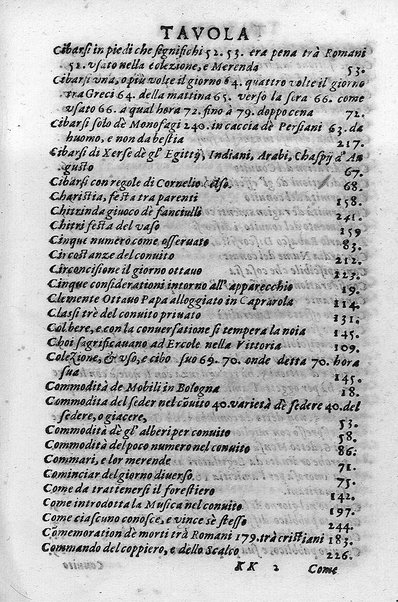 TAVOLA
Cibarsi in piedi che significhi 52. 53. era pena trà Romani
52. vsato nella colezione, e Merenda 53.
Cibarsi vna, o più volte il giorno 64. quattro volte il giorno
tra Greci 64. della mattina 65. verso la sera 66. come
vsato 66. a qual hora 72. fino à 79. doppo cena 72.
Cibarsi solo dè Monofagi 240. in caccia dè Persiani 63. da
huomo, e non da bestia 217.
Cibarsi di Xerse dè gl' Egittij, Indiani, Arabi, Chaspij d' Au
gusto 67.
Cibarsi con regole di Cornelio Celso. 68.
Charistia, festa tra parenti 158.
Chitrinda giuoco dè fanciulli 241.
Chitri festa del vaso 159
Cinque numero come osseruato 83.
Circostanze del conuito 212.
Circoncisione il giorno ottauo 123.
Cinque considerationi intorno all' apparecchio 19.
Clemente Ottauo Papa alloggiato in Caprarola 114.
Classi trè del conuito priuato 131.
Col bere, e con la conuersatione si tempera la noia 145.
Choi sagrificauano ad Ercole nella Vittoria 109.
Colezione, & vso, e cibo suo 69. 70. onde detta 70. hora
sua 145.
Commodità de Mobili in Bologna 18.
Commodità del seder nel cōuito 40. varietà dè sedere 40. del
sedere, o giacere, 53.
Commodità dè gl' alberi per conuito 58.
Commodità del poco numero nel conuito 86.
Commari, e lor merende 71.
Cominciar del giorno diuerso 75.
Come da trattenersi il forestiero 142.
Come introdotta la Musica nel conuito 197.
Come ciascuno conosce, e vince sè stesso 244.
Comemoration dè morti trà Romani 179. trà cristiani 183.
Commando del coppiero, e dello Scalco 226.
KK 2 Come